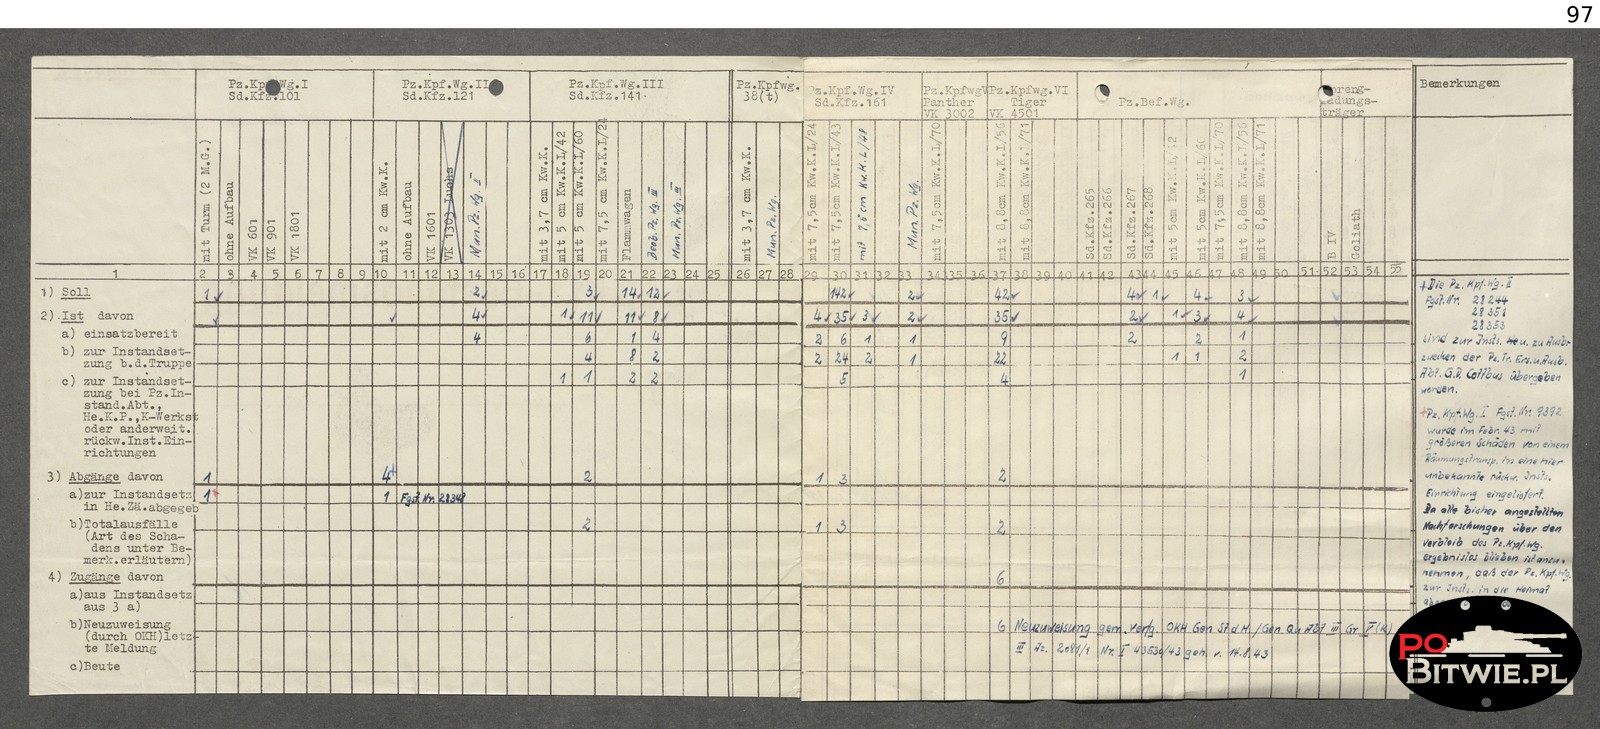 97
Pz.Kpf.Wg.I
Sd.Kfz.101
Pz.Kpf.Wg.II
Sd.Kfz.121
Pz.Kpf.Wg.III
Sd.Kfz.141
Pz.Kpfwg.
38(t)
Pz.Kpf.Wg.IV
Sd.Kfz.161
Pz.Kpfwg.V
Panther
VK 3002
Pz.Kpfwg.VI
Tiger
VK 4501
Pz.Bef.Wg.
Bemerkungen
mit Turm (2 M.G.)
ohne Aufbau
VK 601
VK 901
VK 1801
mit 2 cm Kw.K.
ohne Aufbau
VK 1601
VK 1303 Luchs
Mun.Pz.Wg. I
mit 3,7 cm Kw.K.
mit 5 cm Kw.K.L/42
mit 5 cm Kw.K.L/60
mit 7,5 cm Kw.K.L/24
Flammwagen
Beob.Pz.Wg. III
Mun.Pz.Wg. III
mit 3,7 cm Kw.K.
Mun.Pz.Wg.
mit 7,5cm Kw.K.L/24
mit 7,5cm Kw.K.L/43
mit 7,5 cm Kw.K.L/48
Mun.Pz.Wg.
mit 7,5cm Kw.K.L/70
mit 8,8cm Kw.K.L/56
mit 8,8cm Kw.K.L/71
Sd.Kfz.265
Sd.Kfz.266
Sd.Kfz.267
Sd.Kfz.268
mit 5cm Kw.K.L/42
mit 5cm Kw.K.L/60
mit 7,5cm Kw.K.L/70
mit 8,8cm Kw.K.L/56
mit 8,8cm Kw.K.L/71
B IV
Goliath
1 2 3 4 5 6 7 8 9 10 11 12 13 14 15 16 17 18 19 20 21 22 23 24 25 26 27 28 29 30 31 32 33 34 35 36 37 38 39 40 41 42 43 44 45 46 47 48 49 50 51 52 53 54 55
1) Soll 1 2 3 14 12 142 2 42 4 1 4 3
2) Ist davon 4 1 11 11 8 4 35 3 2 35 2 1 3 4
a) einsatzbereit 4 6 1 4 2 6 1 1 9 2 2 1
b) zur Instandset-
zung b.d.Truppe 4 8 2 2 24 2 1 22 1 1 2
c) zur Instandset- 1 1 2 2 5 4 1
zung bei Pz.In-
stand.Abt.,
He.K.P.,K-Werkst
oder anderweit.
rückw.Inst.Ein-
richtungen
3) Abgänge davon 1 4+ 2 1 3 2
a)zur Instandsetz 1+ 1 Fgst.Nr. 28348
in He.Zä.abgegeb
b)Totalausfälle 2 1 3 2
(Art des Scha-
dens unter Be-
merk.erläutern)
4) Zugänge davon 6
a)aus Instandsetz
aus 3 a)
b)Neuzuweisung 6 Neuzuweisung gem. Verfg. OKH Gen St d H /Gen Qu Abt III Gr V (K)
(durch OKH)letz-
te Meldung
c)Beute
+Die Pz.Kpf.Wg. II
Fgst.Nr. 28244
28351
28353
sind zur Insts.
zwecken der Pz.Tr.Ers.u.Ausb.
Abt. G.D. Cottbus übergeben
worden.
+Pz.Kpf.Wg. I Fgst.Nr. 9392
wurde im Febr. 43 mit
größeren Schäden von einem
Räumungstransp. in eine hier
unbekannte rückw. Insts.
Einrichtung eingeliefert.
Da alle bisher angestellten
Nachforschungen über den
Verbleib des Pz.Kpf.Wg.
ergebnislos blieben ist anzu-
nehmen, daß der Pz.Kpf.Wg.
zur Insts. in die Heimat
PO
BITWIE.PL